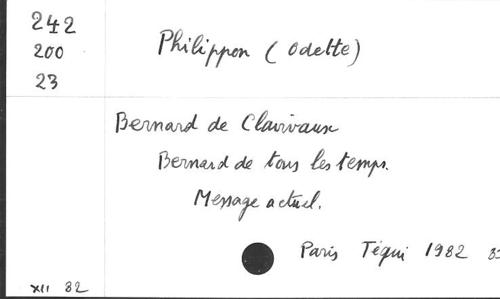 242
200
23
Philippon (Odette)
Bernard de Clairvaux
Bernard de tous les temps.
Message actuel.
Paris Téqui 1982
XII 82